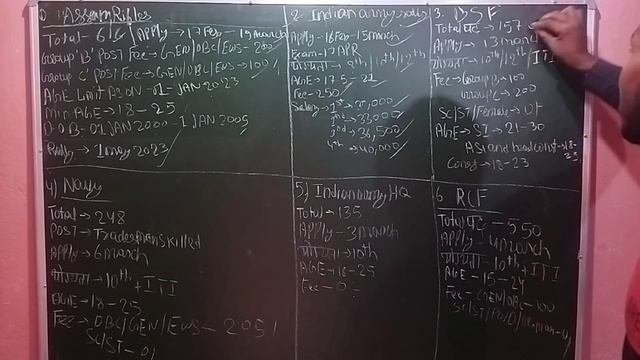 1 Assam Rifles
Total - 616 / Apply → 17 Feb - 19 march
Group 'B' Post Fee → GEN/OBC/EWS - 200
Group 'C' Post Fee → GEN/OBC/EWS → 100
AGE Limit Based on - 01 - JAN 2023
Min AGE → 18 - 25
D.O.B - 01 JAN 2000 - 1 JAN 2005
Rally → 1 may 2023
2. Indian army
Apply - 16 Feb - 15 march
Exam - 17 APR
योग्यता → 8th / 10th / 12th
AGE → 17.5 - 21
Fee - 250
Salary → 1st → 30,000
2nd → 33000
3rd → 36,500
4th → 40,000
3. BSF
Total पद → 157
Apply → 13 march
योग्यता → 10th / 12th / ITI
Fee → Group B → 100
Group C → 200
SC/ST/Female → 0/-
AGE → SI → 21-30
ASI and head const → 18-25
Const → 18-23
4) Navy
Total → 248
Post → Tradesman skilled
Apply → 6 march
योग्यता → 10th + ITI
AGE → 18 - 25
Fee → OBC/GEN/EWS - 205/-
SC/ST - 0/-
5) Indian army HQ
Total → 135
Apply - 3 march
योग्यता → 10th
AGE → 18 - 25
Fee - 0/-
6. RCF
Total पद - 550
Apply - 4 march
योग्यता - 10th + ITI
AGE - 15 - 24
Fee - GEN/OBC - 100
SC/ST/PWD/woman - 0/-